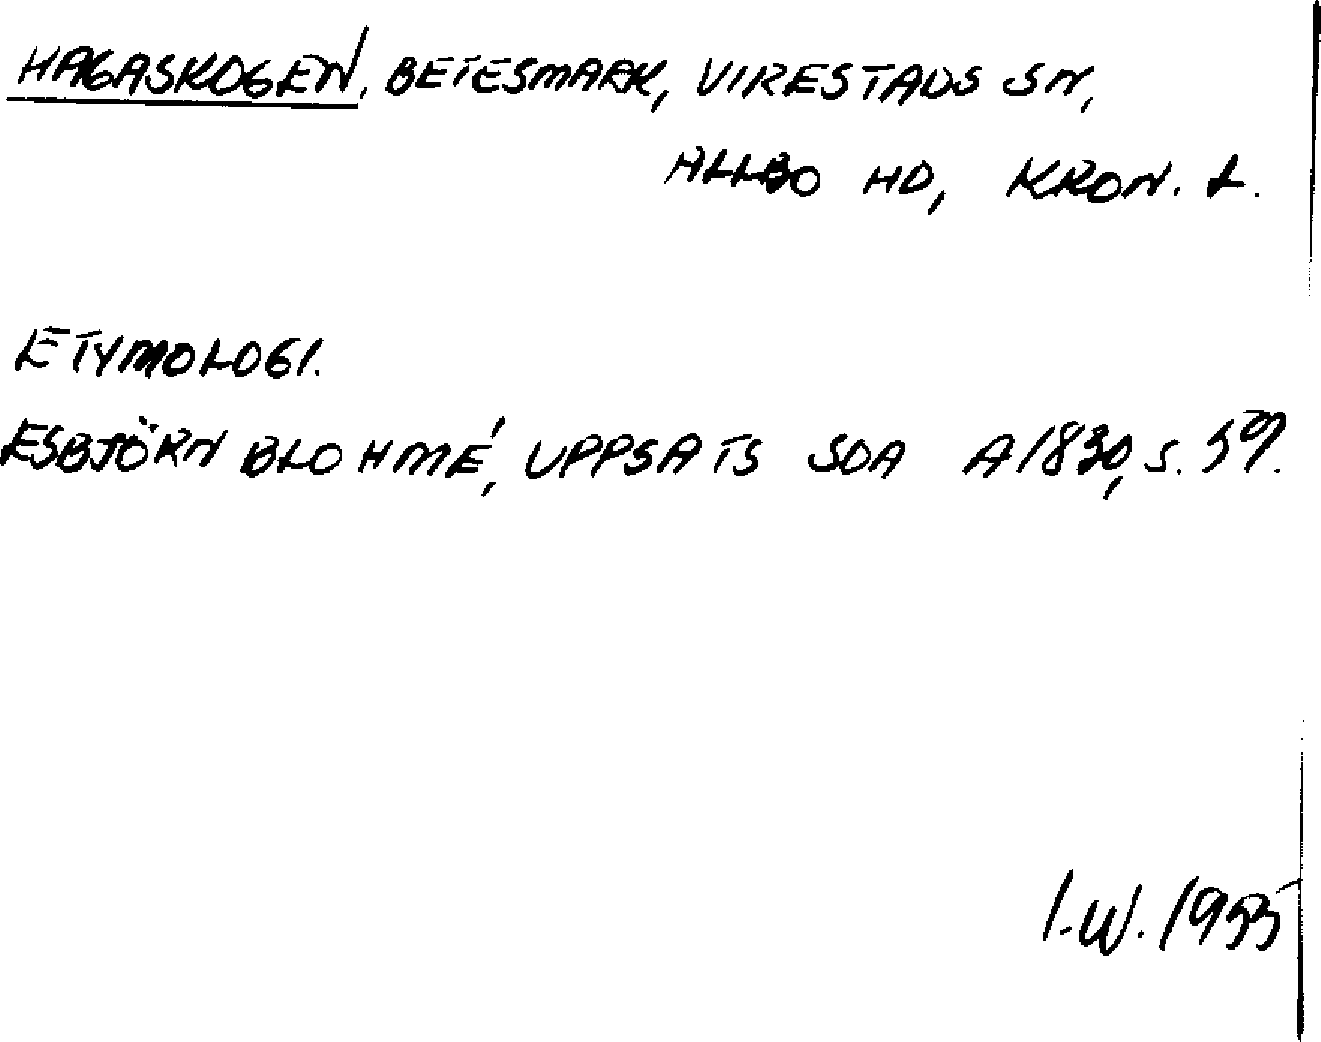 HAGASKOGEN, BETESMARK, VIRESTADS SN,
ALLBO HD, KRON. L.
ETYMOLOGI.
ESBJÖRN BLOHMÉ, UPPSATS SOA A1830, S. 59.
I.W. 1955